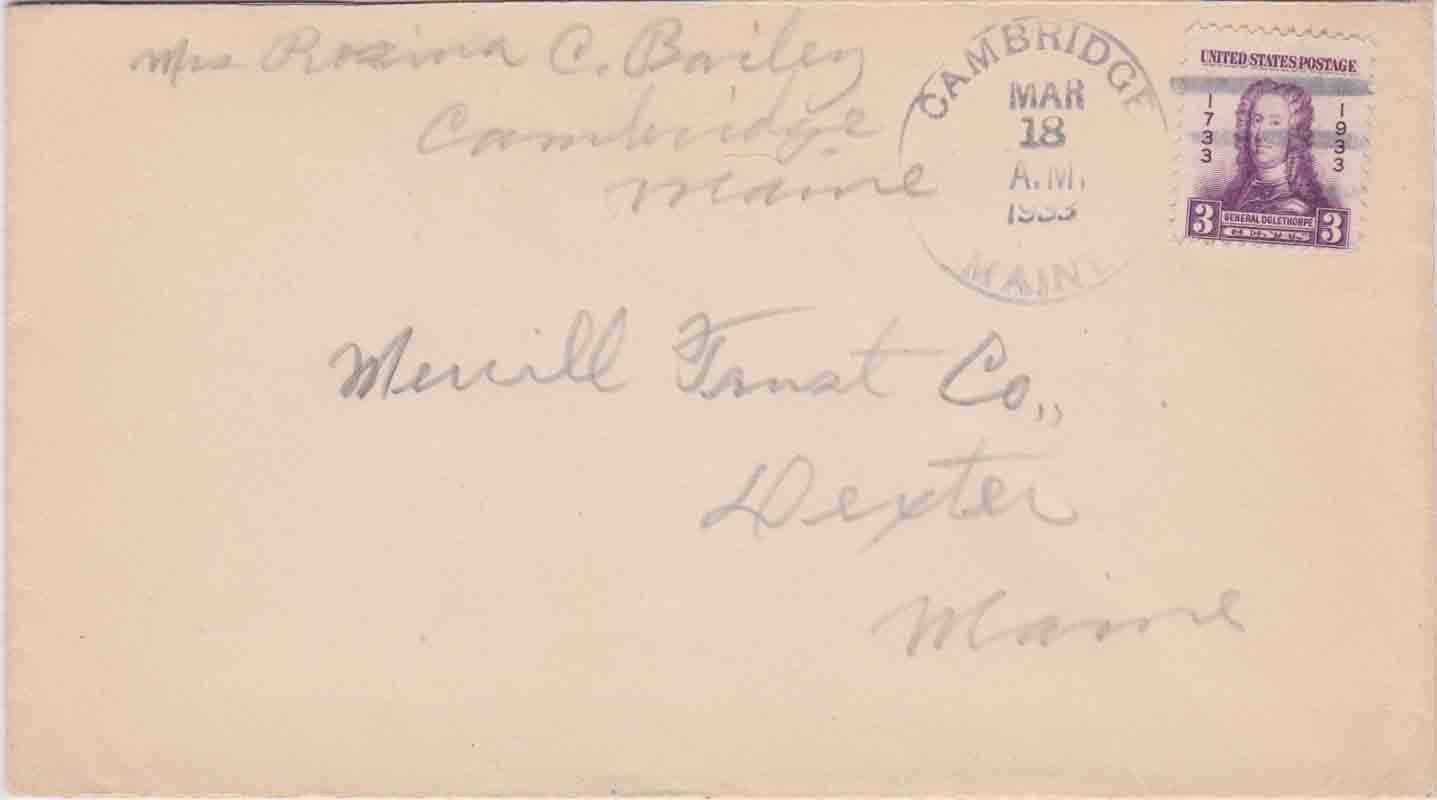 Mrs Rozina C. Bailey
Cambridge
Maine
CAMBRIDGE
MAR
18
A.M.
1933
MAINE
UNITED STATES POSTAGE
1733
1933
3 GENERAL OGLETHORPE 3
Merrill Trust Co.,
Dexter
Maine